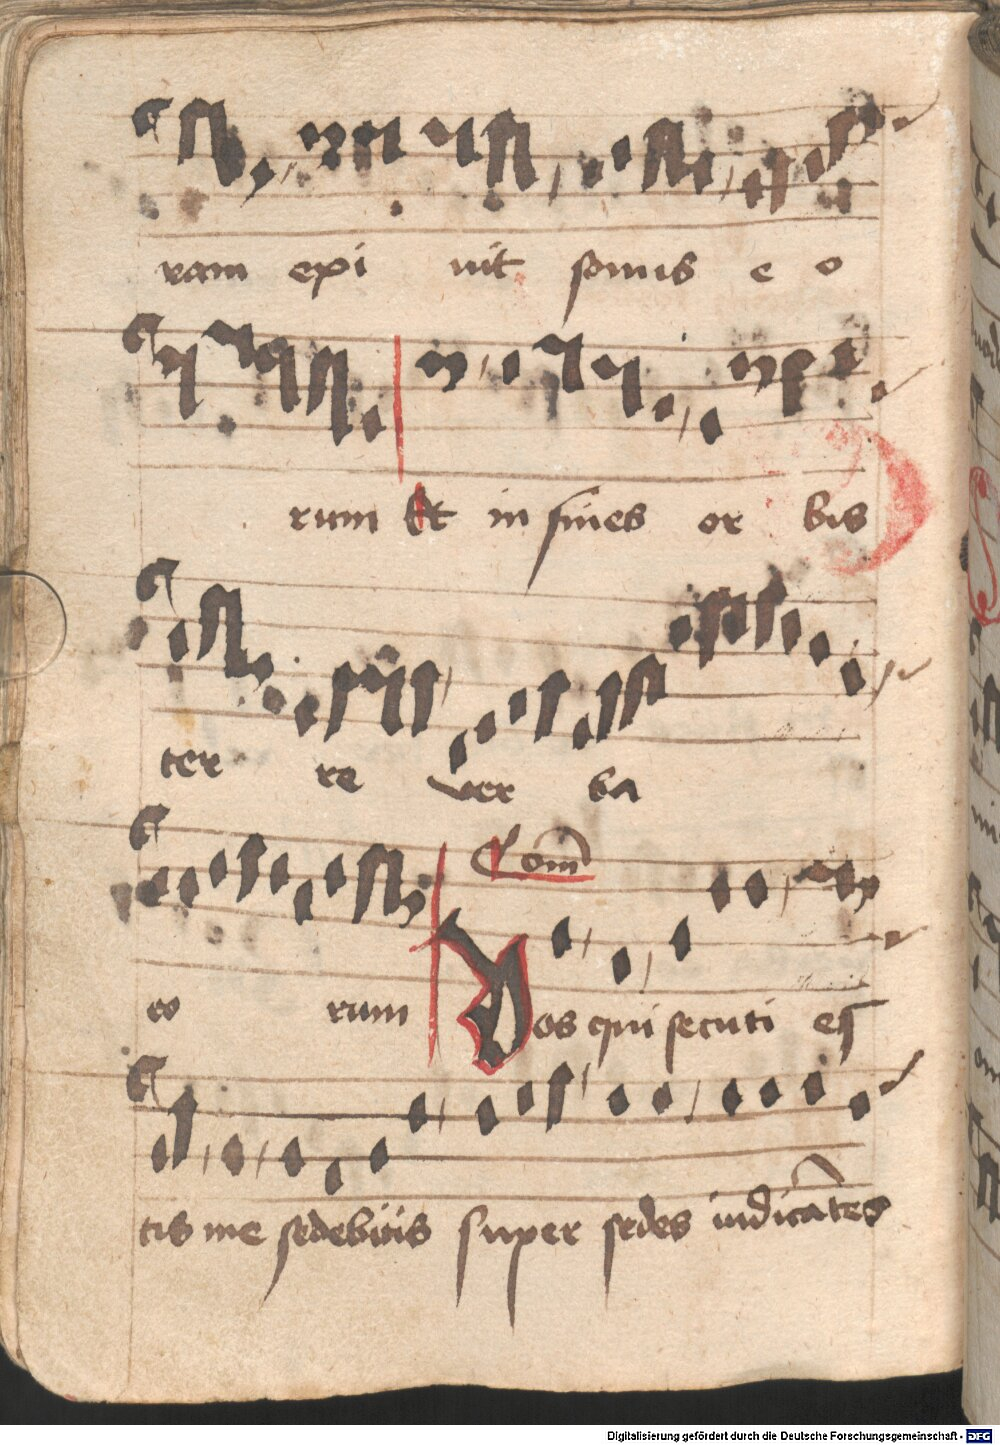 ram expi uit sonus e o
rum Et in fines or bis
ter re ver ba
Com̄
eo rum Vos qui secuti es
tis me sedebitis super sedes iudicātes
Digitalisierung gefördert durch die Deutsche Forschungsgemeinschaft - DFG